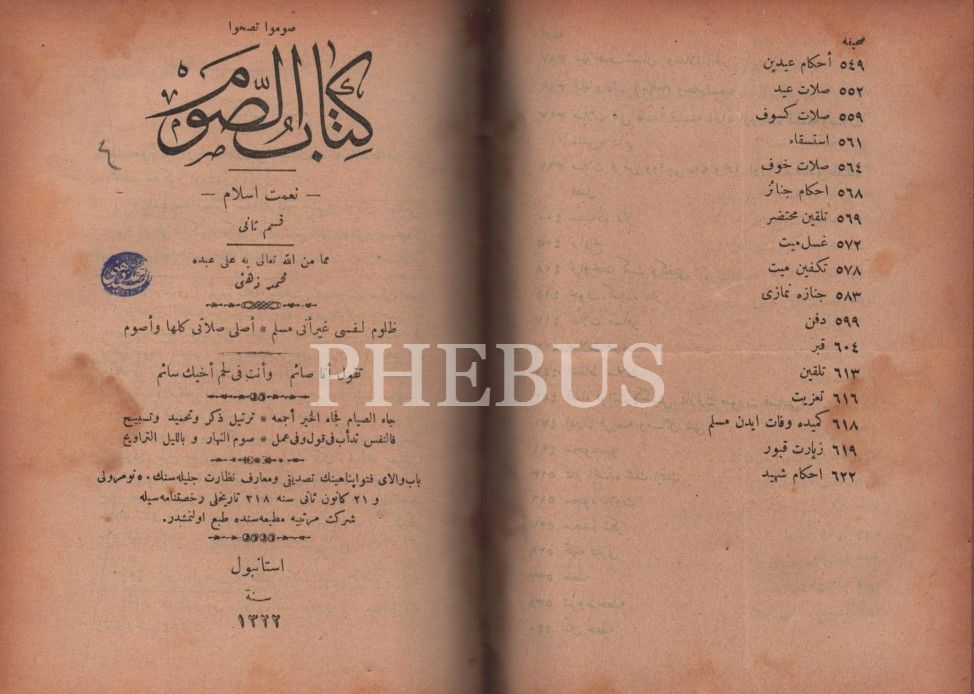 صحيفه
٥٤٩ أحكام عيدين
٥٥٢ صلات عيد
٥٥٩ صلات كسوف
٥٦١ استسقاء
٥٦٤ صلات خوف
٥٦٨ احكام جنائز
٥٦٩ تلقين محتضر
٥٧٢ غسل ميت
٥٧٨ تكفين ميت
٥٨٣ جنازه نمازى
٥٩٩ دفن
٦٠٤ قبر
٦١٣ تلقين
٦١٦ تعزيت
٦١٨ كميده وفات ايدن مسلم
٦١٩ زيارت قبور
٦٢٢ احكام شهيد
صوموا تصحوا
كتاب الصّوم
— نعمت اسلام —
قسم ثانى
مما من الله تعالى به على عبده
محمد ذهنى
ظلوم لنفسى غير أنى مسلم * أصلى صلاتى كلها وأصوم
تقول أنا صائم وأنت فى لحم أخيك سائم
جاء الصيام فجاء الخير أجمعه * ترتيل ذكر وتحميد وتسبيح
فالنفس تدأب فى قول وفى عمل * صوم النهار و بالليل التراويح
باب والاى فتوا پناهينك تصديقى ومعارف نظارت جليله سنك ٥٠ نومرولى
و ٢١ كانون ثانى سنه ٣١٨ تاريخلى رخصتنامه سيله
شركت مرتبيه مطبعه سنده طبع اولنمشدر.
استانبول
سنة
١٣٢٢
PHEBUS